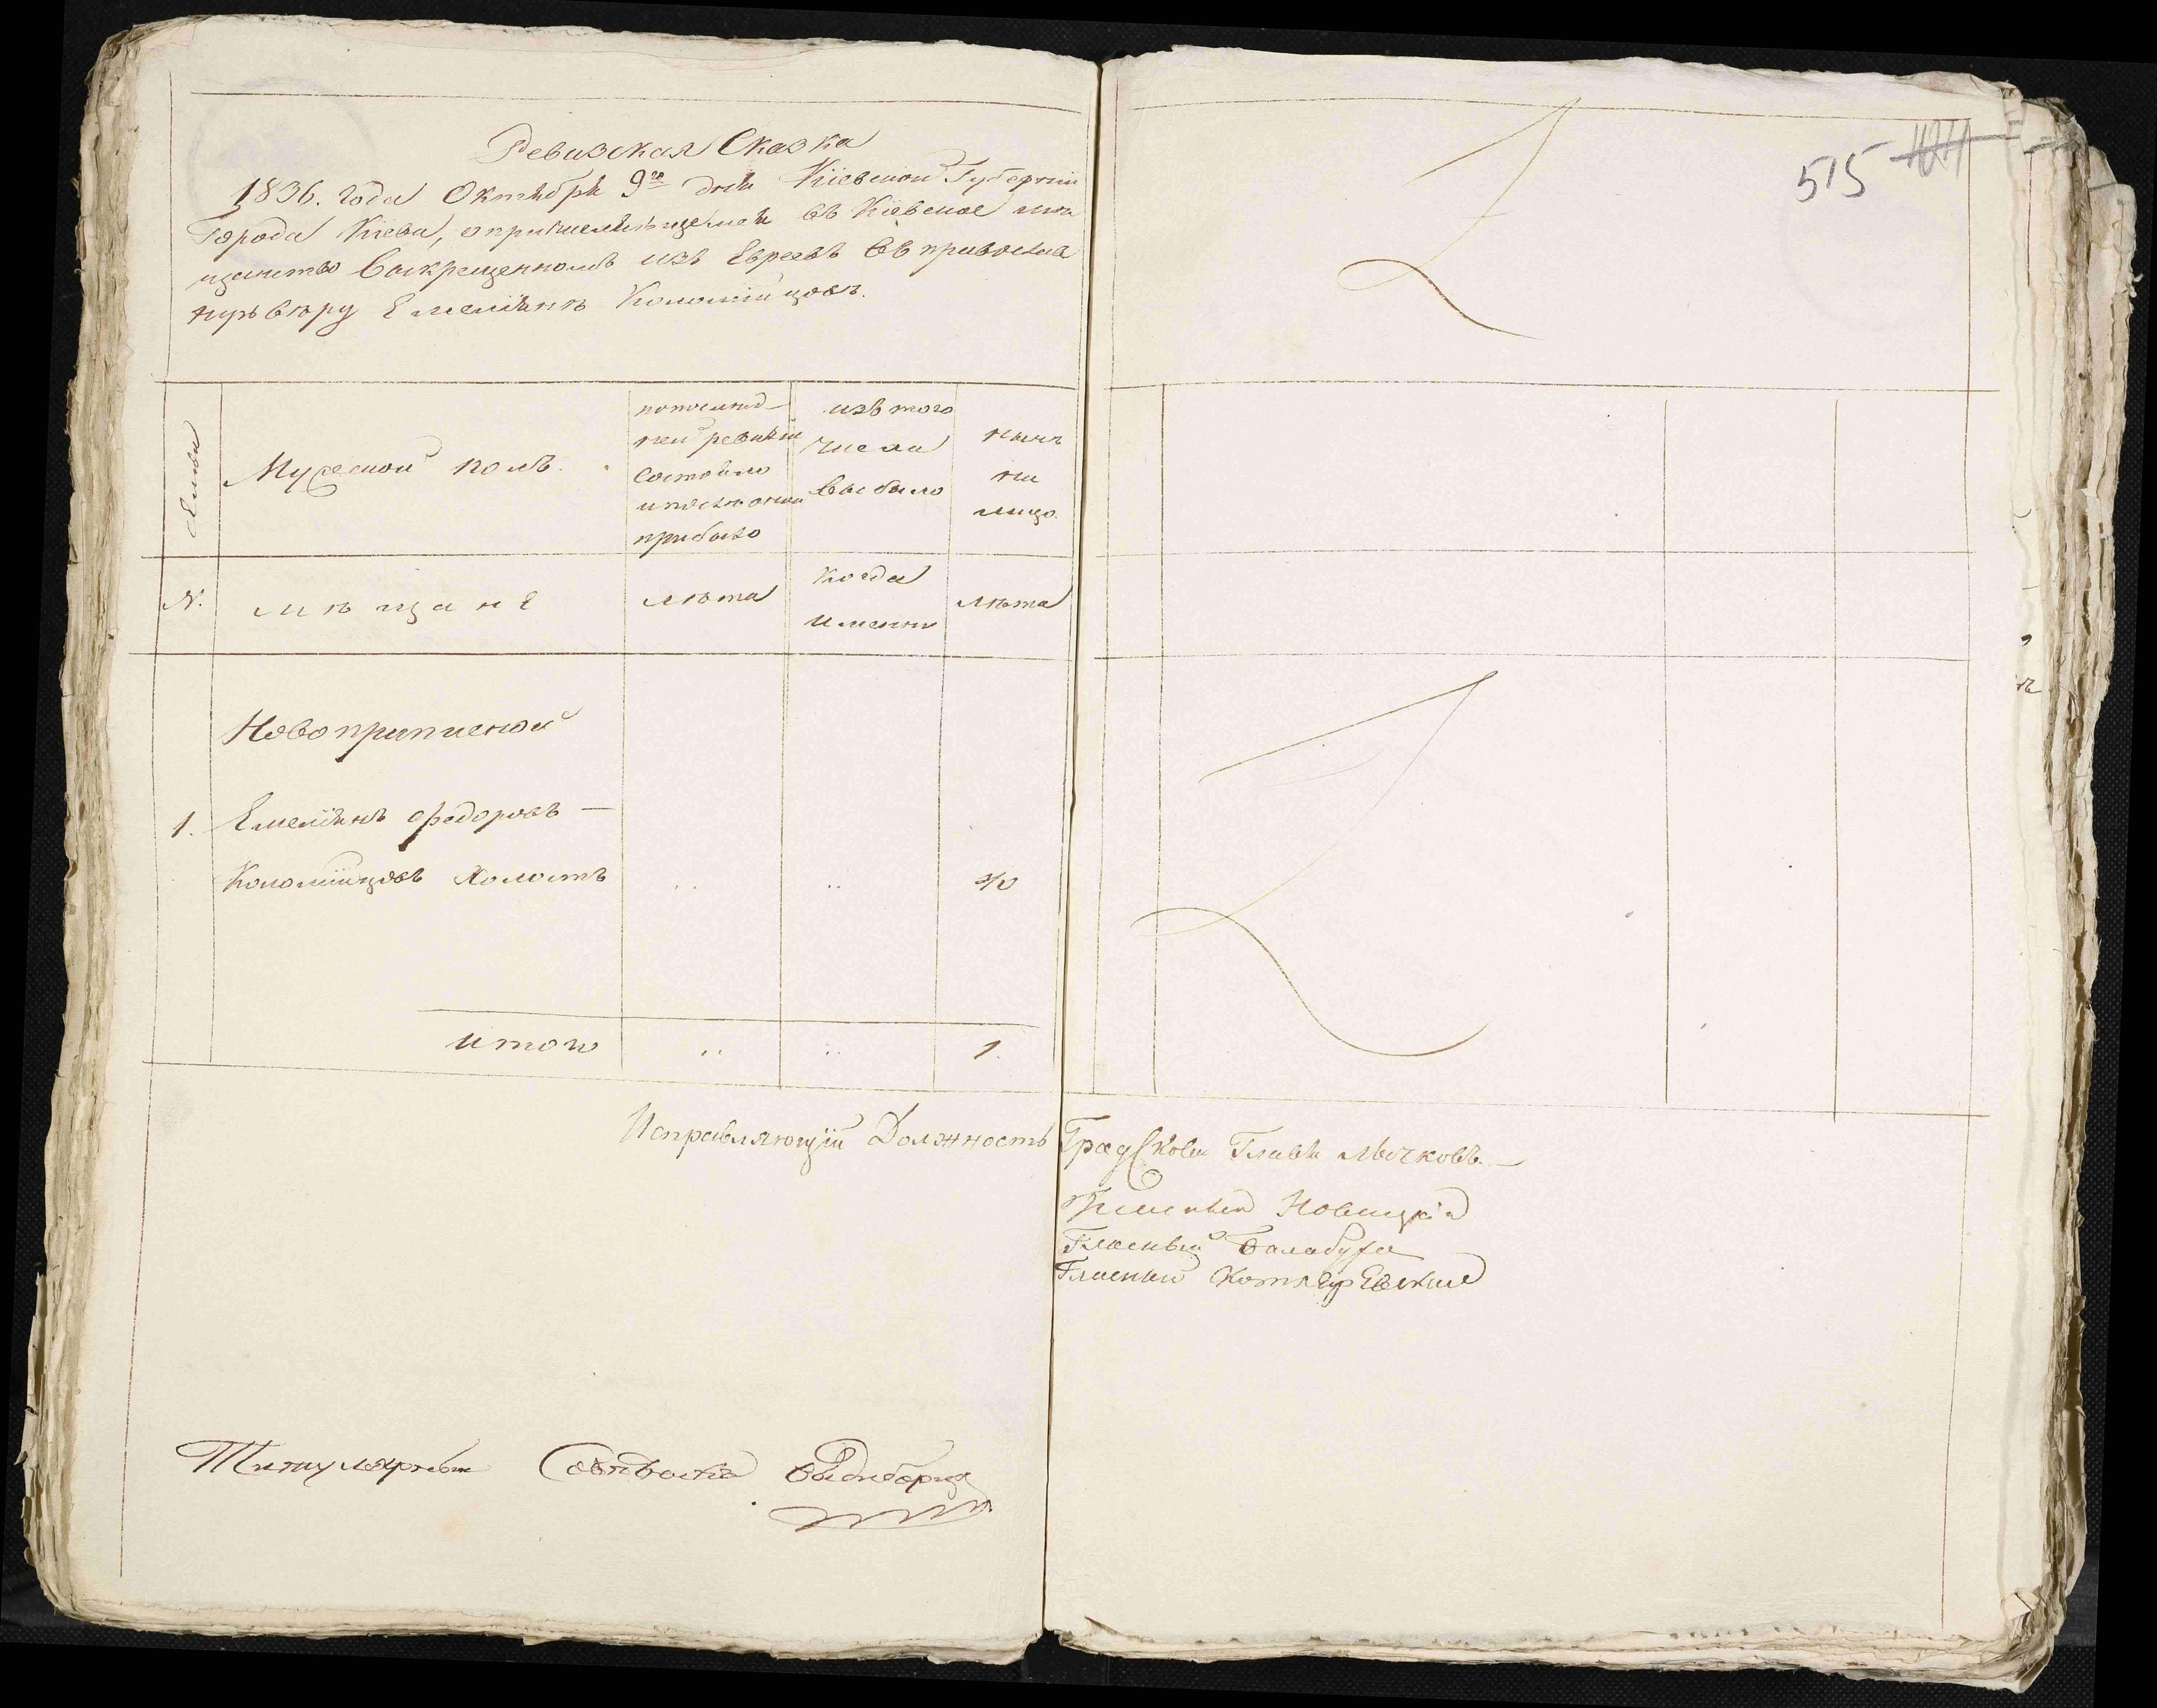 Ревизская Сказка
1836. года Октября 9го дня Кіевской Губерніи
Города Кіева, о причисляющемся въ Кіевское мѣ
щанство Выкрещенномъ изъ Евреевъ въ православ
ную вѣру Емельянѣ Коломійцовѣ.
515
Семьи
Мужеской полъ.
по послѣд-
ней ревизіи
состояло
и послѣ оной
прибыло
изъ того
числа
выбыло
нынѣ
на
лицо.
N.
мѣщане
лѣта
когда
именно
лѣта
Новоприписной
1. Емельянъ Федоровъ —
Коломійцовъ Холостъ .. .. 40
итого .. .. 1.
Исправляющій Должность Градскова Главы Лычковъ. —
Гласный Новицкій
Гласный Балабуха
Гласный Котляревскій
Титулярный Совѣтникъ